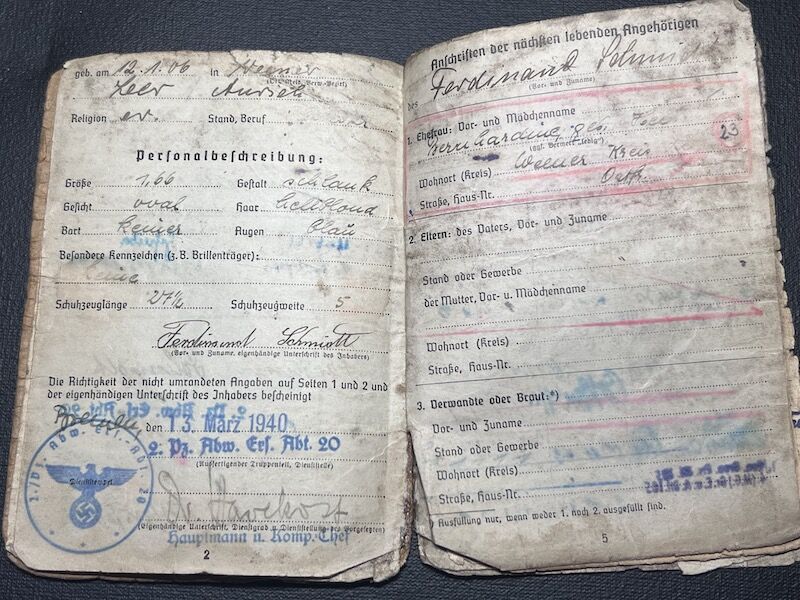 geb. am 12.1.06 in Weener
(Ort, Kreis, Verw.-Bezirk)
Leer Aurich
Religion ev. Stand, Beruf
Personalbeschreibung:
Größe 1,66 Gestalt schlank
Gesicht oval Haar hellblond
Bart keiner Augen blau
Besondere Kennzeichen (z.B. Brillenträger):
keine
Schuhzeuglänge 27½ Schuhzeugweite 5
Ferdinand Schmidt
(Vor- und Zuname, eigenhändige Unterschrift des Inhabers)
Die Richtigkeit der nicht umrandeten Angaben auf Seiten 1 und 2 und
der eigenhändigen Unterschrift des Inhabers bescheinigt
den 13. März 1940
2. Pz. Abw. Ers. Abt. 20
(Ausfertigender Truppenteil, Dienststelle)
Dienststempel
(Eigenhändige Unterschrift, Dienstgrad u. Dienststellung des Vorgesetzten)
Hauptmann u. Komp.-Chef
2
Anschriften der nächsten lebenden Angehörigen
des Ferdinand Schmidt
(Vor- und Zuname)
1. Ehefrau: Vor- und Mädchenname
Bernhardine geb.
(ggf. Vermerk „ledig“)
23
Wohnort (Kreis) Weener Kreis
Straße, Haus-Nr.
2. Eltern: des Vaters, Vor- und Zuname
Stand oder Gewerbe
der Mutter, Vor- u. Mädchenname
Wohnort (Kreis)
Straße, Haus-Nr.
3. Verwandte oder Braut:*)
Vor- und Zuname
Stand oder Gewerbe
Wohnort (Kreis)
Straße, Haus-Nr.
*) Ausfüllung nur, wenn weder 1. noch 2. ausgefüllt sind.
5